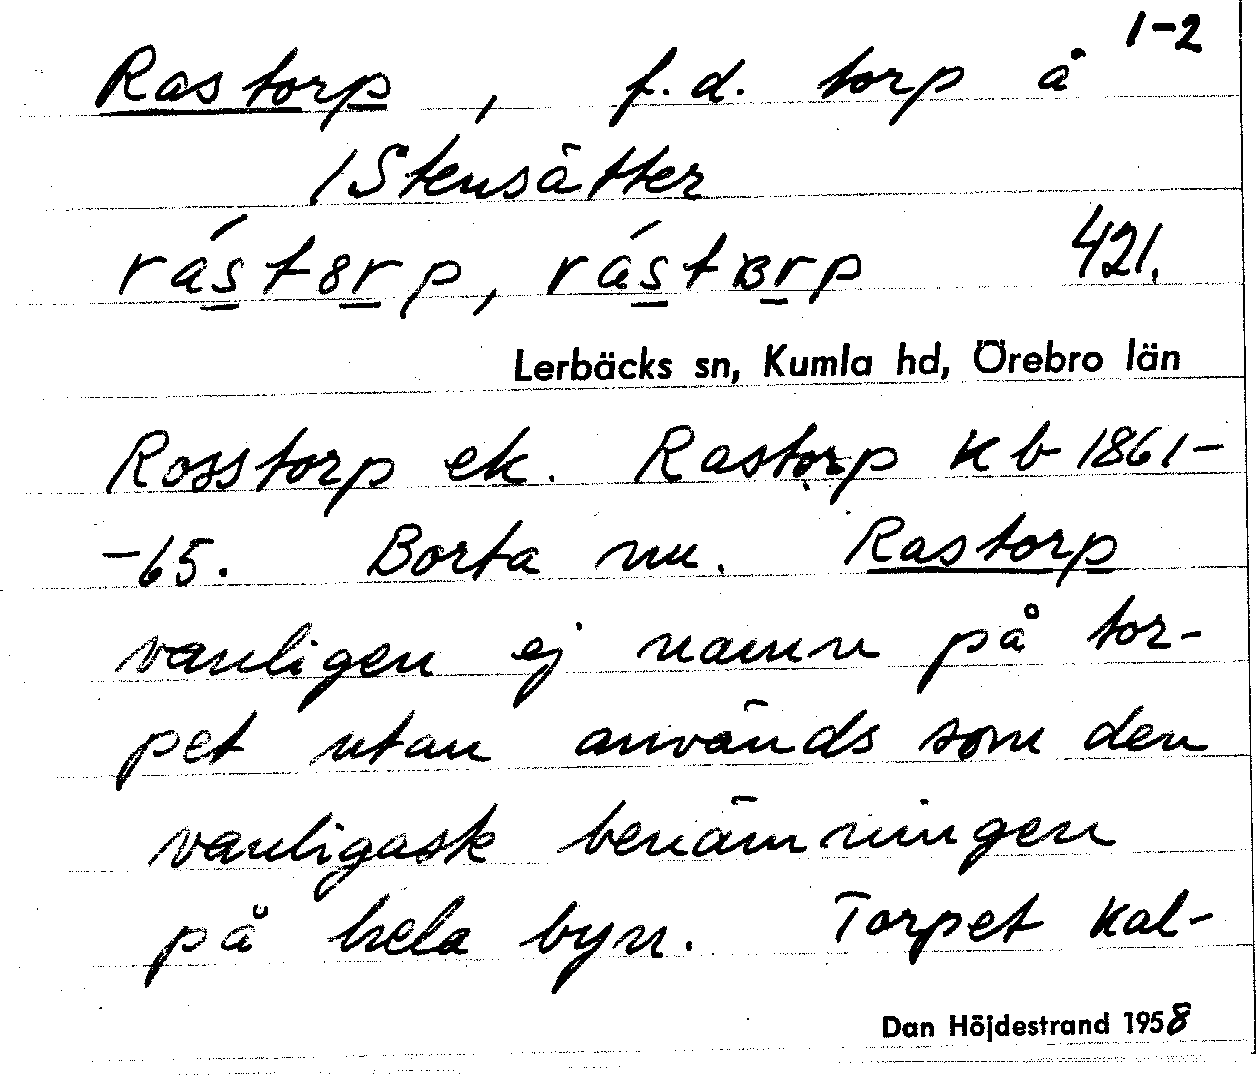 1-2
Rastorp, f.d. torp å
1 Stensätter
rás̲t8r̲p, rás̲tʙr̲p 421.
Lerbäcks sn, Kumla hd, Örebro län
Rosstorp ek. Rastorp Kb 1861-
-65. Borta nu. Rastorp
vanligen ej namn på tor-
pet utan används som den
vanligask benämningen
på hela byn. Torpet kal-
Dan Höjdestrand 1958